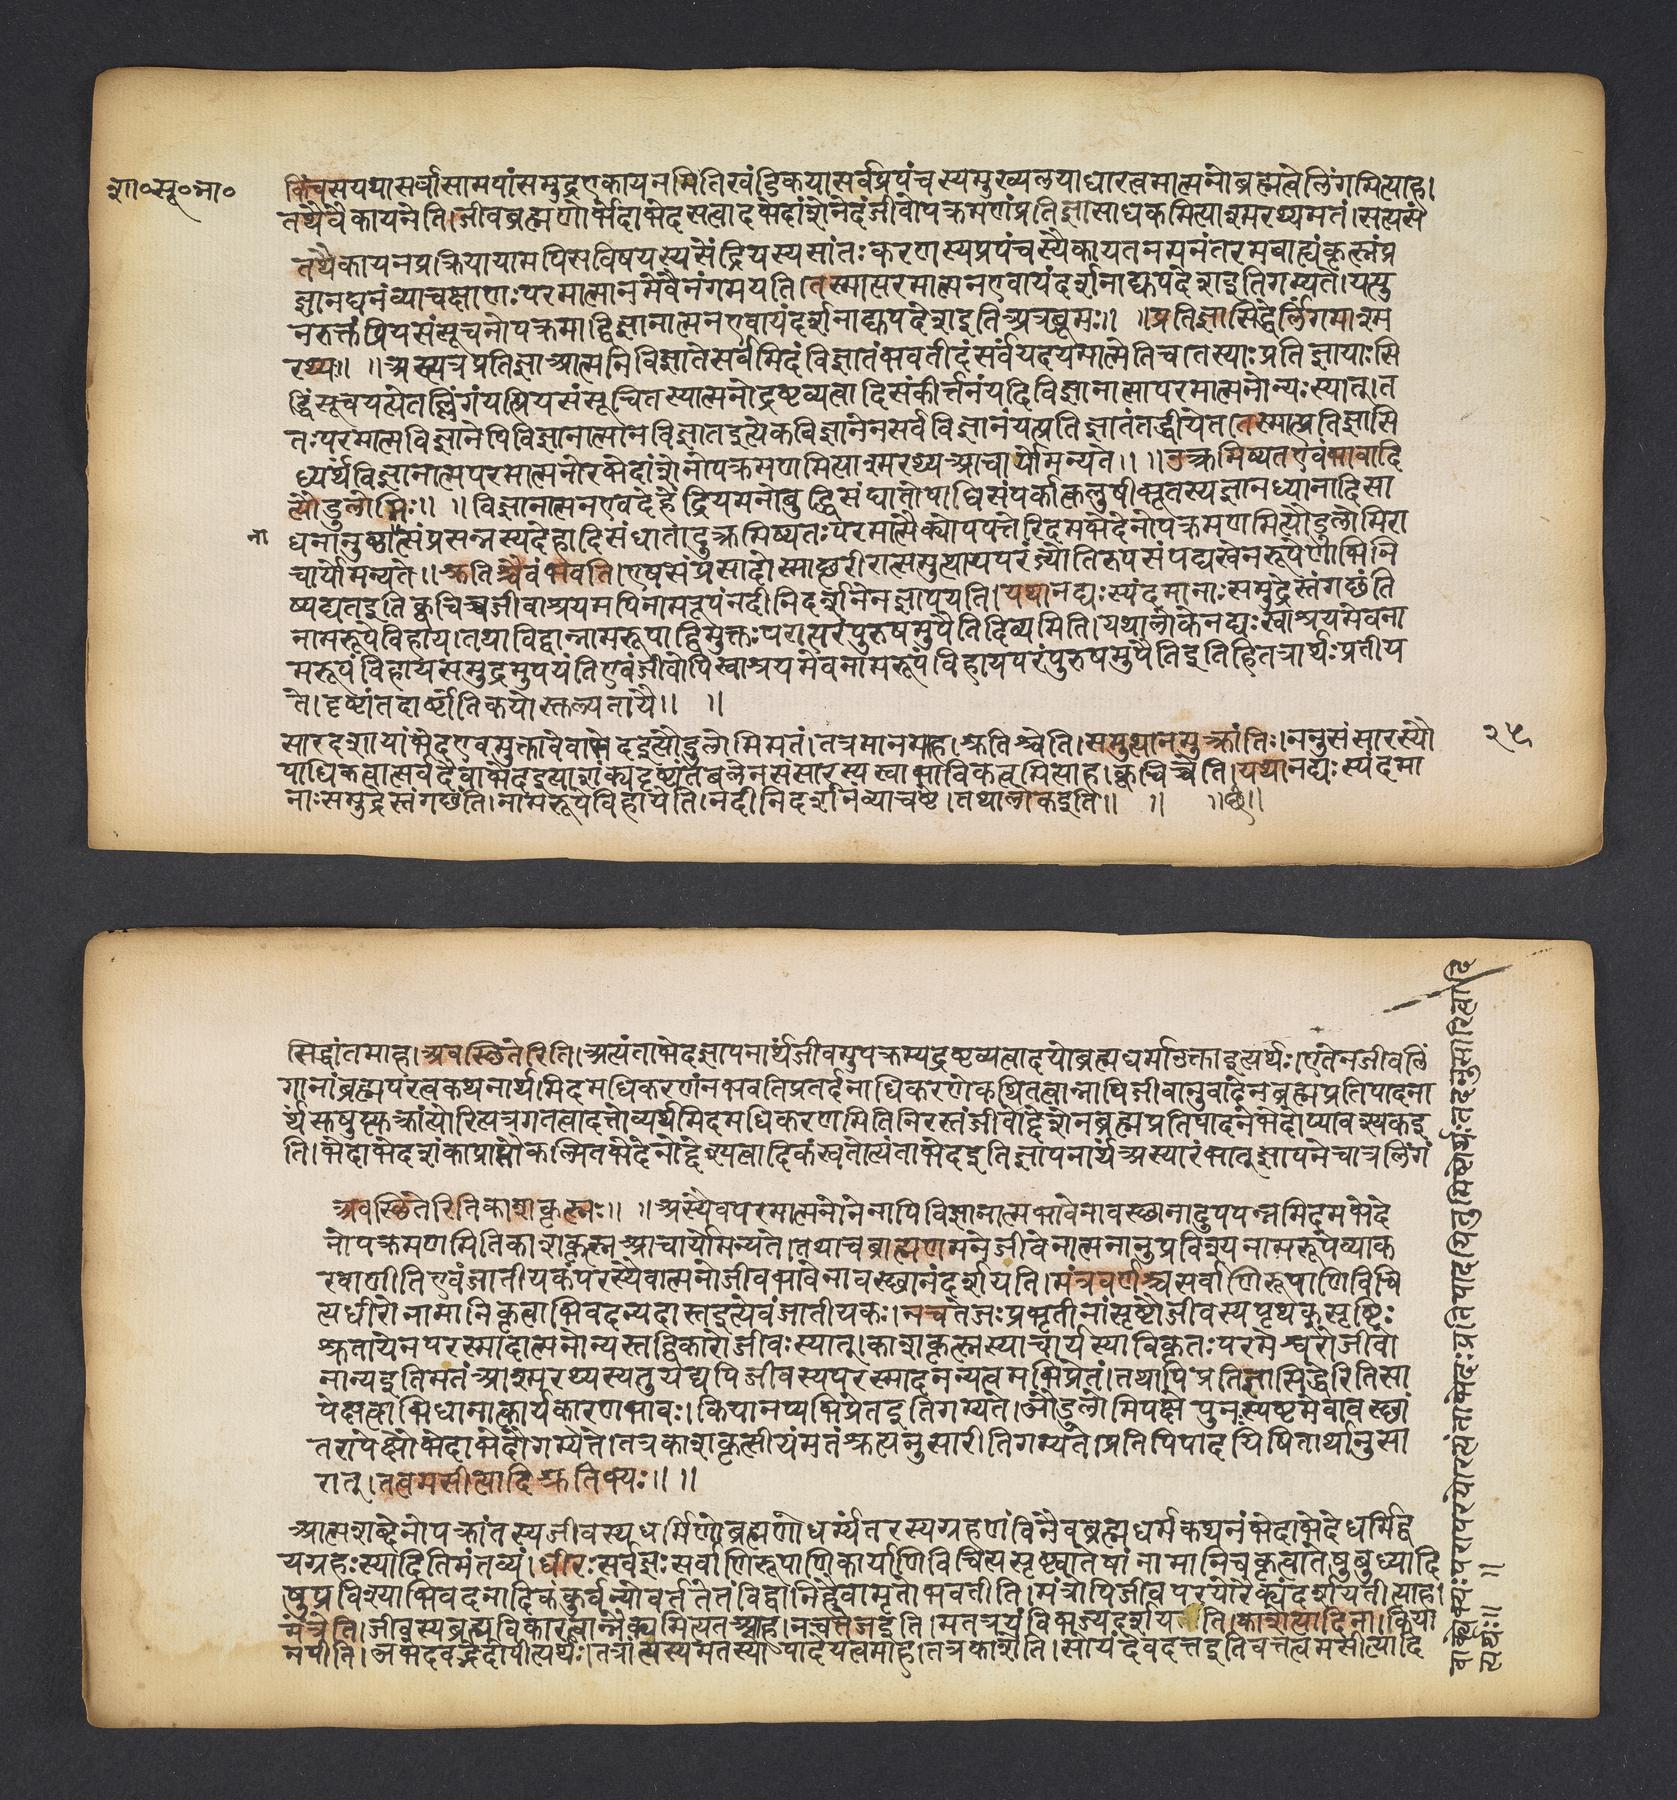 शा०सू०भा०
किंच स यथा सर्वासामपां समुद्र एकायनमिति खंडिकया सर्वप्रपंचस्य मुख्यलयाधारत्वमात्मनो ब्रह्मत्वे लिंगमित्याह।
तथैवैकायनेति। जीवब्रह्मणोर्भेदाभेदसत्वादभेदांशेनेदं जीवोपक्रमणं प्रतिज्ञासाधकमित्याश्मरथ्यमतं। सत्यसं
तथैकायनप्रक्रियायामपि सविषयस्य सेंद्रियस्य सांतःकरणस्य प्रपंचस्यैकायतनमनंतरमबाह्यं कृत्स्नं प्र
ज्ञानघनं व्याचक्षाणः परमात्मानमेवैनं गमयति। तस्मात्परमात्मन एवायं दर्शनाद्युपदेश इति गम्यते। यत्पु
नरुक्तं प्रियसंसूचनोपक्रमाद्विज्ञानात्मन एवायं दर्शनाद्युपदेश इति अत्र ब्रूमः॥ ॥प्रतिज्ञासिद्धेर्लिंगमाश्म
रथ्यः॥ ॥अस्त्यत्र प्रतिज्ञा आत्मनि विज्ञाते सर्वमिदं विज्ञातं भवतीदं सर्वं यदयमात्मेति च। तस्याः प्रतिज्ञायाः सि
द्धिं सूचयत्येतल्लिंगं यत्प्रियसंसूचितस्यात्मनो द्रष्टव्यत्वादिसंकीर्त्तनं यदि विज्ञानात्मा परमात्मनोन्यः स्यात्। त
तः परमात्मविज्ञानेपि विज्ञानात्मा न विज्ञात इत्येकविज्ञानेन सर्वविज्ञानं यत्प्रतिज्ञातं तद्धीयेत तस्मात्प्रतिज्ञासि
ध्यर्थं विज्ञानात्मपरमात्मनोरभेदांशेनोपक्रमणमित्याश्मरथ्य आचार्यो मन्यते॥ ॥उत्क्रमिष्यत एवंभावादि
त्यौडुलोमिः॥ ॥विज्ञानात्मन एव देहेंद्रियमनोबुद्धिसंघातोपाधिसंपर्कात्कलुषीभूतस्य ज्ञानध्यानादिसा
ना
धनानुष्ठात्संप्रसन्नस्य देहादिसंघातादुत्क्रमिष्यतः परमात्मैक्योपपत्तेरिदमभेदेनोपक्रमणमित्यौडुलोमिरा
चार्यो मन्यते॥ श्रुतिश्चैवं भवति। एष संप्रसादोस्माछरीरात्समुत्थाय परं ज्योतिरुपसंपद्य स्वेन रूपेणाभिनि
ष्पद्यत इति क्वचिच्च जीवाश्रयमपि नामरूपं नदीनिदर्शनेन ज्ञापयति। यथा नद्यः स्यंदमानाः समुद्रेस्तं गछंति
नामरूपे विहाय। तथा विद्वान्नामरूपाद्विमुक्तः परात्परं पुरुषमुपैति दिव्यमिति। यथा लोके नद्यः स्वाश्रयमेव ना
मरूपं विहाय समुद्रमुपयंति एवं जीवोपि स्वाश्रयमेव नामरूपं विहाय परं पुरुषमुपैति इति हि तत्रार्थः प्रतीय
ते। दृष्टांतदार्ष्टांतिकयोस्तुल्यतायै॥ ॥
सारदशायां भेद एव मुक्तावेवाभेद इत्यौडुलोमिमतं। तत्र मानमाह। श्रुतिश्चेति। समुत्थानमुत्क्रांतिः। ननु संसारस्यौ
२५
पाधिकत्वात्सर्वदैवाभेद इत्याशंक्य दृष्टांतबलेन संसारस्य स्वाभाविकत्वमित्याह। क्वचिच्चेति। यथा नद्यः स्यंदमा
नाः समुद्रेस्तं गछंति। नामरूपे विहायेति। नदीनिदर्शनं व्याचष्टे। तथा लोक इति॥ ॥ ॥छ॥
सिद्धांतमाह। अवस्थितेरिति। अत्यंताभेदज्ञापनार्थं जीवमुपक्रम्य द्रष्टव्यत्वादयो ब्रह्मधर्मा उक्ता इत्यर्थः। एतेन जीवलिं
गानां ब्रह्मपरत्वकथनार्थमिदमधिकरणं न भवति प्रतर्दनाधिकरणे कथितत्वान्नापि जीवानुवादेन ब्रह्मप्रतिपादना
र्थं सुषुप्त्युत्क्रांत्योरित्यत्र गतत्वादतो व्यर्थमिदमधिकरणमिति निरस्तं जीवोद्देशेन ब्रह्मप्रतिपादने भेदोप्यावश्यक इ
ति। भेदाभेदशंकाप्राप्तौ कल्पितभेदेनोद्देश्यत्वादिकं स्वतोत्यंताभेद इति ज्ञापनार्थं अस्यारंभात् ज्ञापने चात्र लिंगं
अवस्थितेरिति काशकृत्स्नः॥ ॥अस्यैव परमात्मनोनेनापि विज्ञानात्मभावेनावस्थानादुपपन्नमिदमभेदे
नोपक्रमणमिति काशकृत्स्न आचार्यो मन्यते। तथा च ब्राह्मणमनेन जीवेनात्मनानुप्रविश्य नामरूपे व्याक
रवाणीति एवंजातीयकं परस्यैवात्मनो जीवभावेनावस्थानं दर्शयति। मंत्रवर्णश्च सर्वाणि रूपाणि विचि
त्य धीरो नामानि कृत्वाभिवदन्यदास्त इत्येवंजातीयकः। न च तेजःप्रभृतीनां सृष्टौ जीवस्य पृथक् सृष्टिः
श्रुता येन परस्मादात्मनोन्यस्तद्विकारो जीवः स्यात्। काशकृत्स्नस्याचार्यस्याविकृतः परमेश्वरो जीवो
नान्य इति मतं आश्मरथ्यस्य तु यद्यपि जीवस्य परस्मादनन्यत्वमभिप्रेतं। तथापि प्रतिज्ञासिद्धेरिति सा
पेक्षत्वाभिधानात्कार्यकारणभावः। कियानप्यभिप्रेत इति गम्यते। औडुलोमिपक्षे पुनः स्पष्टमेवावस्थां
तरापेक्षौ भेदाभेदौ गम्येते। तत्र काशकृत्स्नीयं मतं श्रुत्यनुसारीति गम्यते। प्रतिपिपादयिषितार्थानुसा
रात्। तत्वमसीत्यादिश्रुतिभ्यः॥ ॥
आत्मशब्देनोपक्रांतस्य जीवस्य धर्मिणो ब्रह्मणो धर्म्यंतरस्य ग्रहणं विनैव ब्रह्मधर्मकथनं भेदाभेदे धर्मिद्व
यग्रहः स्यादिति मंतव्यं। धीरः सर्वज्ञः सर्वाणि रूपाणि कार्याणि विचित्य सृष्ट्वा तेषां नामानि च कृत्वा तेषु बुध्यादि
षु प्रविश्याभिवदनादिकं कुर्वन्यो वर्त्तते तं विद्वानिहैवामृतो भवतीति। मंत्रोपि जीवपरयोरैक्यं दर्शयतीत्याह।
मंत्रेति। जीवस्य ब्रह्मविकारत्वान्नैक्यमित्यत आह। न च तेज इति। मतत्रयं विभज्य दर्शयति। काशेत्यादिना। किया
नपीति। अभेदवद्भेदोपीत्यर्थः। तत्रांत्यस्य मतस्योपादेयत्वमाह। तत्र काशेति। सोयं देवदत्त इतिवत्तत्वमसीत्यादि
वाक्येभ्यः परापरयोरत्यंताभेदः प्रतिपादयितुमिष्टोर्थः तदनुसारित्वादि
त्यर्थः॥ ॥